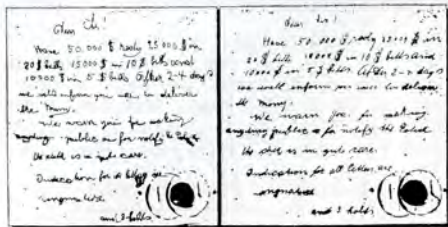 Dear Sir!
Have 50.000 $ redy 25000 $ in
20 $ bills 15000 $ in 10 $ bills and
10000 $ in 5 $ bills. After 2-4 days
we will inform you were to deliver
the Mony.
We warn you for making
anyding public or for notify the Police
the child is in gute care.
Indication for all letters are
singnature
and 3 holds.
Dear Sir!
Have 50.000 $ redy 25000 $ in
20 $ bills 15000 $ in 10 $ bills and
10000 $ in 5 $ bills. After 2-4 days
we will inform you were to deliver
the Mony.
We warn you for making
anyding public or for notify the Police
the child is in gute care.
Indication for all letters are
singnature
and 3 holds.